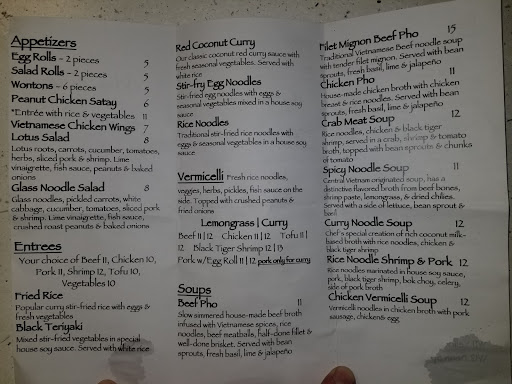 Appetizers
Egg Rolls - 2 pieces 5
Salad Rolls - 2 pieces 5
Wontons - 6 pieces 5
Peanut Chicken Satay 6
*Entrée with rice & vegetables 11
Vietnamese Chicken Wings 7
Lotus Salad 8
Lotus roots, carrots, cucumber, tomatoes,
herbs, sliced pork & shrimp. Lime
vinaigrette, fish sauce, peanuts & baked
onions
Glass Noodle Salad 8
Glass noodles, pickled carrots, white
cabbage, cucumber, tomatoes, sliced pork
& shrimp. Lime vinaigrette, fish sauce,
crushed roast peanuts & baked onions
Entrees
Your choice of Beef 11, Chicken 10,
Pork 11, Shrimp 12, Tofu 10,
Vegetables 10
Fried Rice
Popular curry stir-fried rice with eggs &
fresh vegetables
Black Teriyaki
Mixed stir-fried vegetables in special
house soy sauce. Served with white rice
Red Coconut Curry
Our classic coconut red curry sauce with
fresh seasonal vegetables. Served with
white rice
Stir-fry Egg Noodles
Stir-fried egg noodles with eggs &
seasonal vegetables mixed in a house soy
sauce
Rice Noodles
Traditional stir-fried rice noodles with
eggs & seasonal vegetables in a house soy
sauce
Vermicelli Fresh rice noodles,
veggies, herbs, pickles, fish sauce on the
side. Topped with crushed peanuts &
fried onions
Lemongrass | Curry
Beef 11 | 12 Chicken 11 | 12 Tofu 11 |
12 Black Tiger Shrimp 12 | 13
Pork w/Egg Roll 11 | 12 pork only for curry
Soups
Beef Pho 11
Slow simmered house-made beef broth
infused with Vietnamese spices, rice
noodles, beef meatballs, half-done fillet &
well-done brisket. Served with bean
sprouts, fresh basil, lime & jalapeño
Filet Mignon Beef Pho 15
Traditional Vietnamese Beef noodle soup
with tender filet mignon. Served with bean
sprouts, fresh basil, lime & jalapeño
Chicken Pho 11
House-made chicken broth with chicken
breast & rice noodles. Served with bean
sprouts, fresh basil, lime & jalapeño
Crab Meat Soup 12
Rice noodles, chicken & black tiger
shrimp, served in a crab, shrimp & tomato
broth, topped with bean sprouts & chunks
of tomato
Spicy Noodle Soup 11
Central Vietnam originated soup, has a
distinctive flavored broth from beef bones,
shrimp paste, lemongrass, & dried chilies.
Served with a side of lettuce, bean sprout &
basil
Curry Noodle Soup 12
Chef's special creation of rich coconut milk-
based broth with rice noodles, chicken &
black tiger shrimp
Rice Noodle Shrimp & Pork 12
Rice noodles marinated in house soy sauce,
pork, black tiger shrimp, bok choy, celery,
side of pork broth
Chicken Vermicelli Soup 12
Vermicelli noodles in chicken broth with pork
sausage, chicken& egg